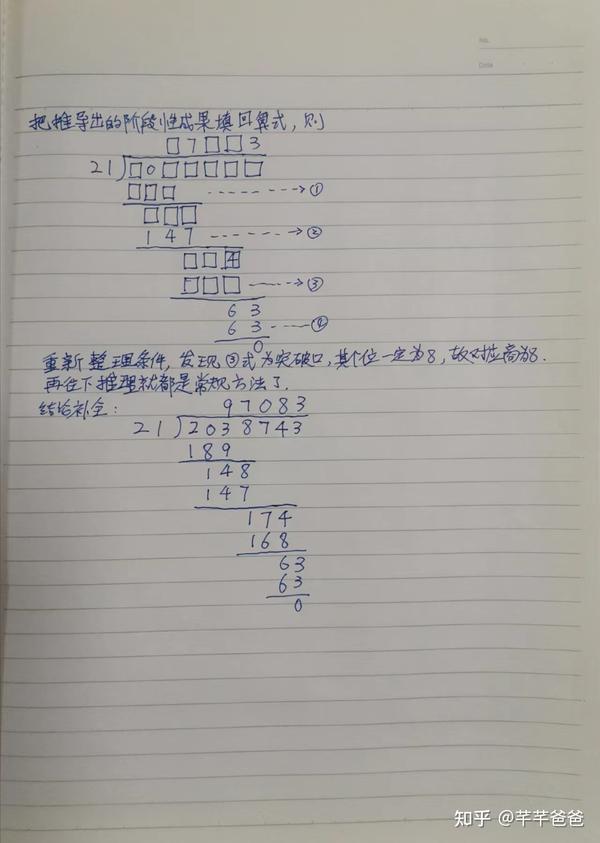 No.
Date
把推导出的阶段性成果填回算式,则
□7□□3
21)□0□□□□□
□□□ ------→①
□□□
147 ------→②
□□4
□□□ ----→③
63
63 ---④
0
重新整理条件,发现③式为突破口,其个位一定为8,故对应商为8.
再往下推理就都是常规方法了.
结论补全:
97083
21)2038743
189
148
147
174
168
63
63
0
知乎 @芊芊爸爸